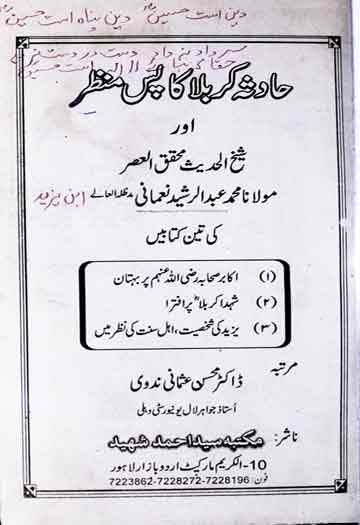 دین است حسینؑ دین پناہ است حسینؑ
سر داد نداد دست در دست یزید
حقا کہ بنائے لا الہ است حسینؑ
حادثہ کربلا کا پس منظر
اور
شیخ الحدیث محقق العصر
مولانا محمد عبدالرشید نعمانی مدظلہ العالے ابن یزید
کی تین کتابیں
(۱) اکابر صحابہ رضی اللہ عنہم پر بہتان
(۲) شہدا کربلاؓ پر افترا
(۳) یزید کی شخصیت، اہل سنت کی نظر میں
مرتبہ
ڈاکٹر محسن عثمانی ندوی
اُستاذ جواہر لال یونیورسٹی دہلی
ناشر: مکتبہ سید احمد شہید
10-الکریم مارکیٹ اردو بازار لاہور
فون: 7223862-7228272-7228196